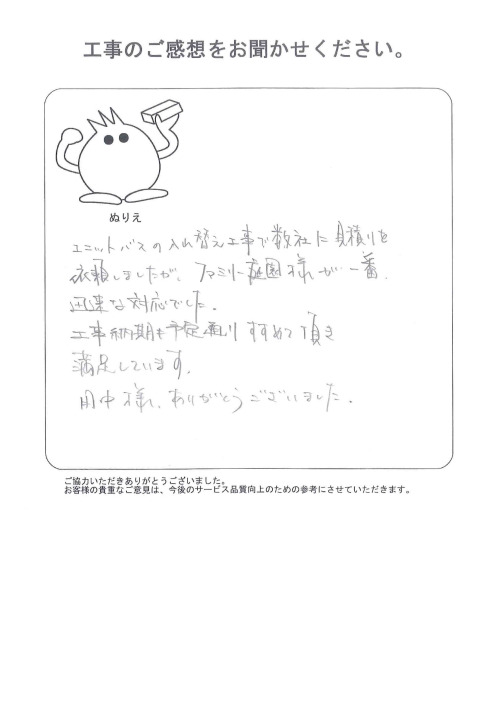 工事のご感想をお聞かせください。
ぬりえ
ユニットバスの入れ替え工事で数社に見積りを
依頼しましたが、ファミリー庭園様が一番
迅速な対応でした。
工事納期も予定通りすすめて頂き
満足しています。
田中様、ありがとうございました。
ご協力いただきありがとうございました。
お客様の貴重なご意見は、今後のサービス品質向上のための参考にさせていただきます。